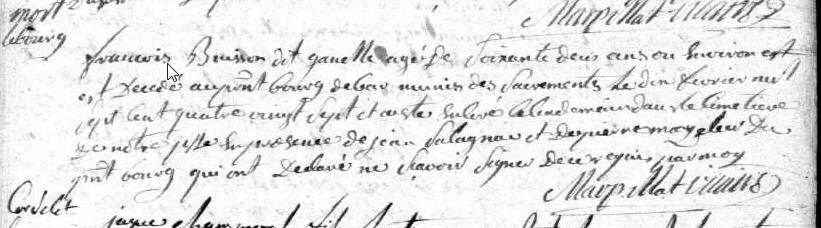 mort
lebourg
Marpillat vicaire
francois Buisson dit ganette agé de soixante deux ans ou environ est
est decedé au pnt bourg de bar munis des sacrements le dix fevrier mil
sept cent quatre vingt sept et a esté enlevé le lendemain dans le cimetiere
de notre psse en presence de jean salagnac et de pierre
du
pnt bourg qui ont declaré ne scavoir signer de ce requis par moy
Marpillat vicaire